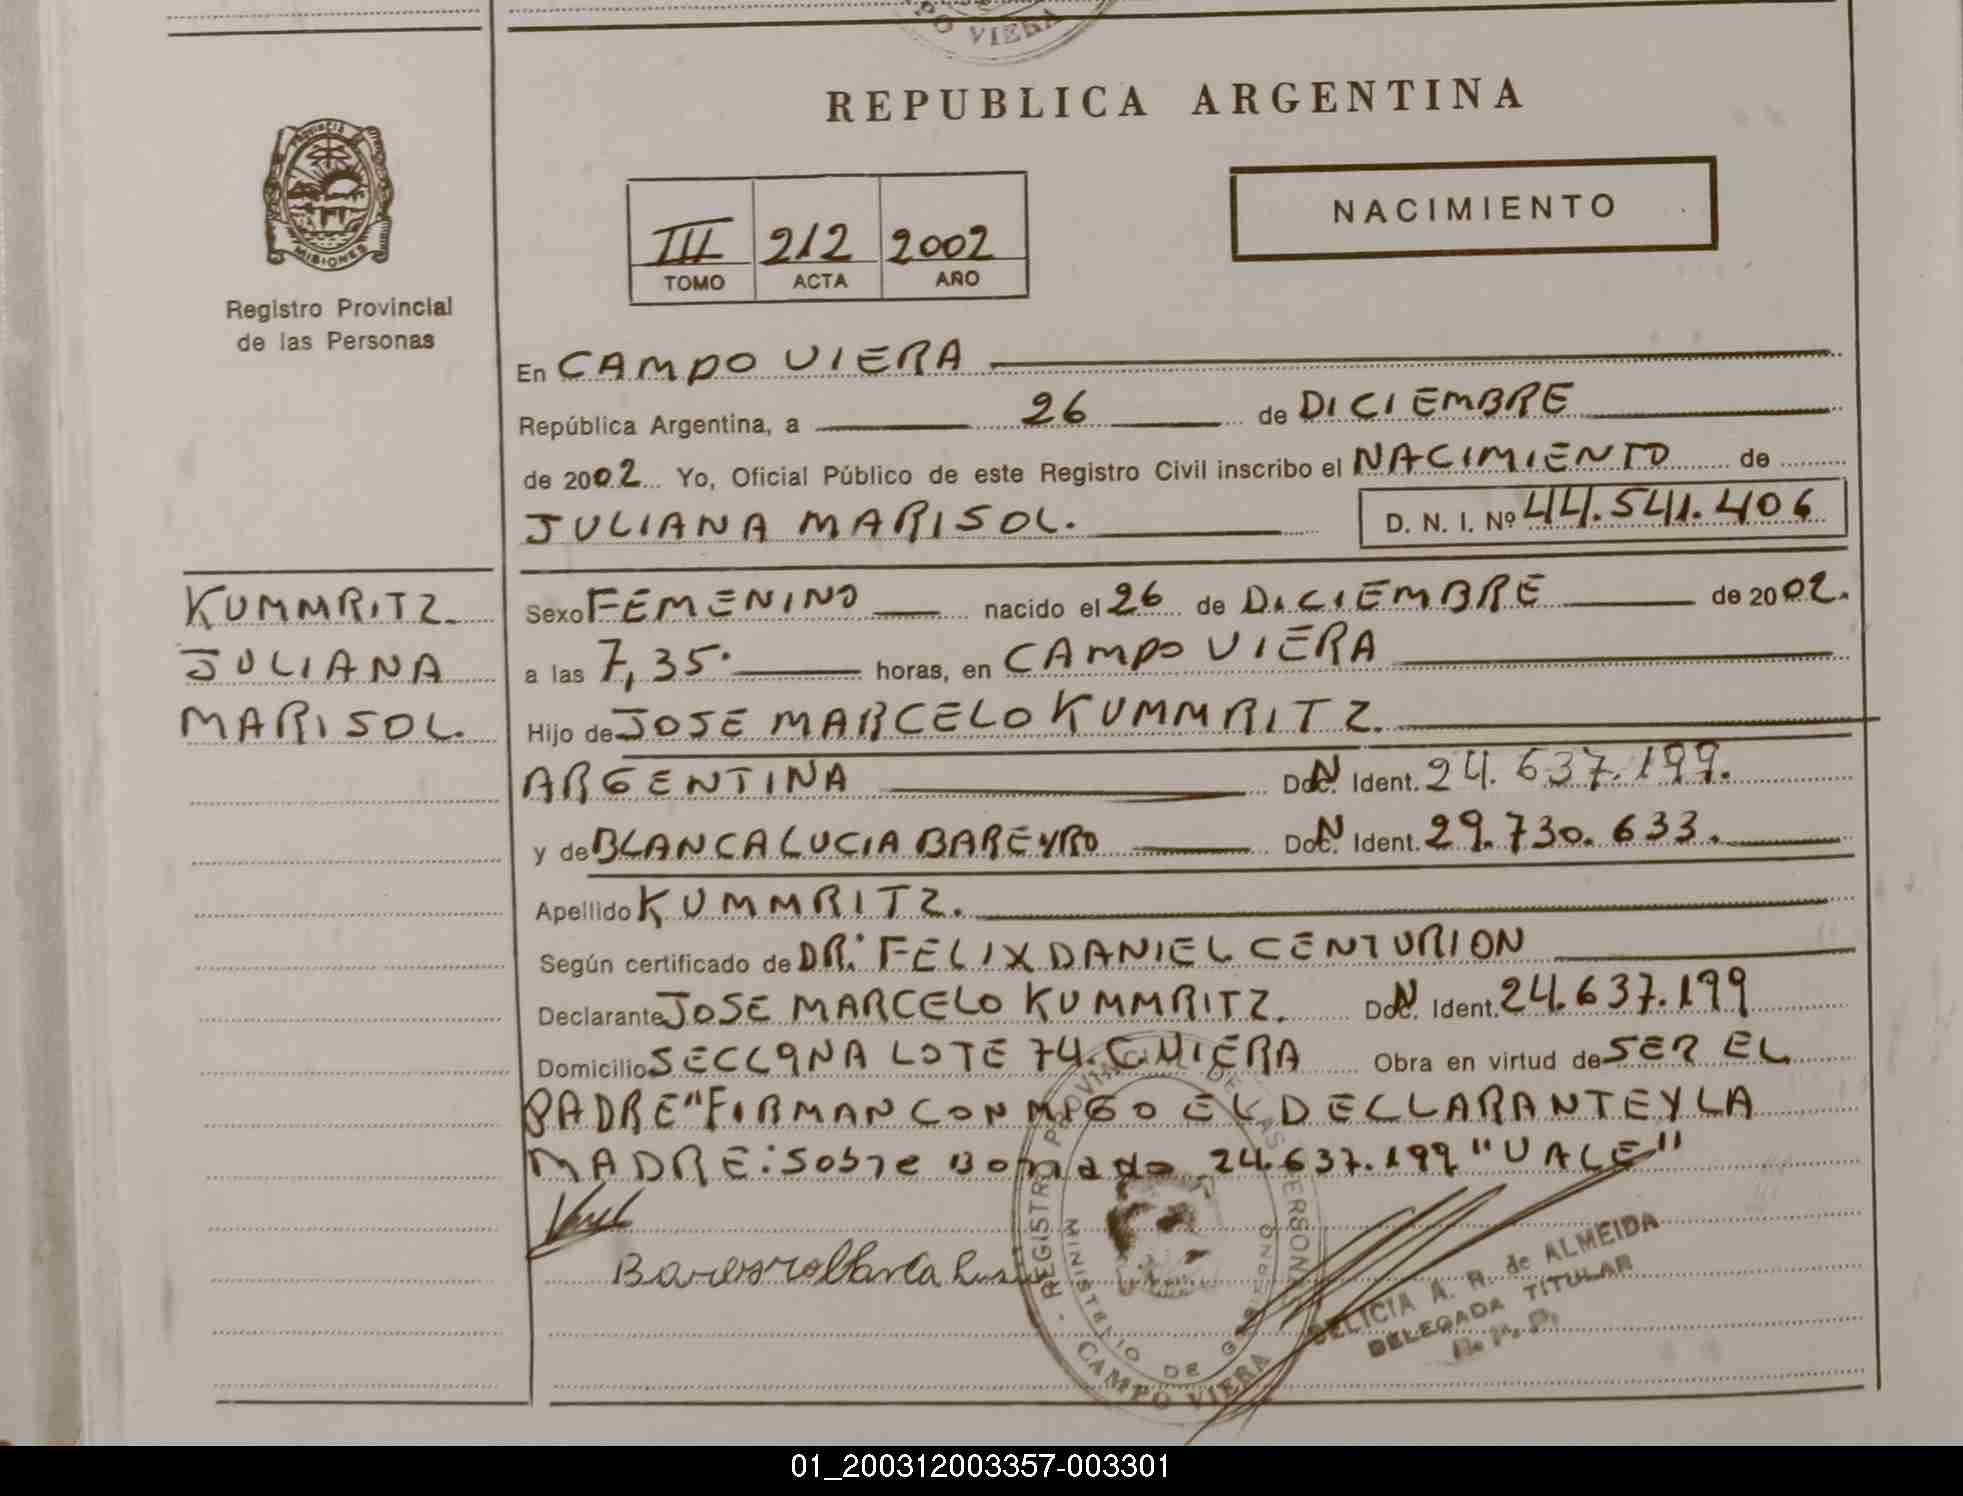 VIERA
REPUBLICA ARGENTINA
PROVINCIA DE
MISIONES
Registro Provincial
de las Personas
III 212 2002
TOMO ACTA AÑO
NACIMIENTO
En CAMPO VIERA
República Argentina, a 26 de DICIEMBRE
de 2002 Yo, Oficial Público de este Registro Civil inscribo el NACIMIENTO de
JULIANA MARISOL. D. N. I. Nº 44.541.406
KUMMRITZ
JULIANA
MARISOL.
Sexo FEMENINO nacido el 26 de DICIEMBRE de 2002.
a las 7,35 horas, en CAMPO VIERA
Hijo de JOSE MARCELO KUMMRITZ.
ARGENTINA Doc. N Ident. 24.637.199.
y de BLANCA LUCIA BAREYRO Doc. N Ident. 29.730.633.
Apellido KUMMRITZ.
Según certificado de DR. FELIX DANIEL CENTURION
Declarante JOSE MARCELO KUMMRITZ. Doc. N Ident. 24.637.199
Domicilio LOTE 74. C. VIERA Obra en virtud de SER EL
PADRE "FIRMAN CONMIGO EL DECLARANTE Y LA
MADRE: Sobre Borrado 24.637.199 "VALE"
REGISTRO PROVINCIAL DE LAS PERSONAS - CAMPO VIERA
MINISTERIO DE GOBIERNO
DELICIA A. R. de ALMEIDA
DELEGADA TITULAR
R. P. P.
01_200312003357-003301